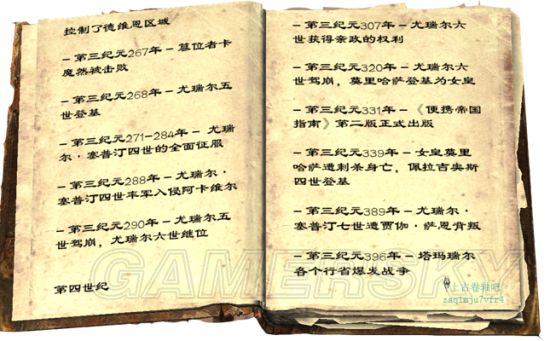 控制了德维恩区域
- 第三纪元267年 - 篡位者卡
魔然被击败
- 第三纪元268年 - 尤瑞尔五
世登基
- 第三纪元271-284年 - 尤瑞
尔·塞普汀四世的全面征服
- 第三纪元288年 - 尤瑞尔·
塞普汀四世率军入侵阿卡维尔
- 第三纪元290年 - 尤瑞尔五
世驾崩，尤瑞尔六世继位
第四世纪
- 第三纪元307年 - 尤瑞尔六
世获得亲政的权利
- 第三纪元320年 - 尤瑞尔六
世驾崩，莫里哈萨登基为女皇
- 第三纪元331年 - 《便携帝国
指南》第二版正式出版
- 第三纪元339年 - 女皇莫里
哈萨遭刺杀身亡，佩拉吉奥斯
四世登基
- 第三纪元389年 - 尤瑞尔·
塞普汀七世遭贾伽·萨恩背叛
- 第三纪元396年 - 塔玛瑞尔
各个行省爆发战争
GAMERSKY
上古卷轴吧
zaq1mju7vfr4